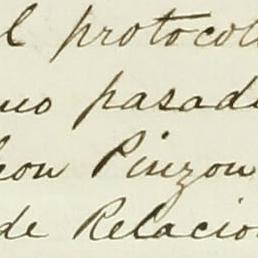 l protocol
uo pasad
eon Pinzon
de Relacio